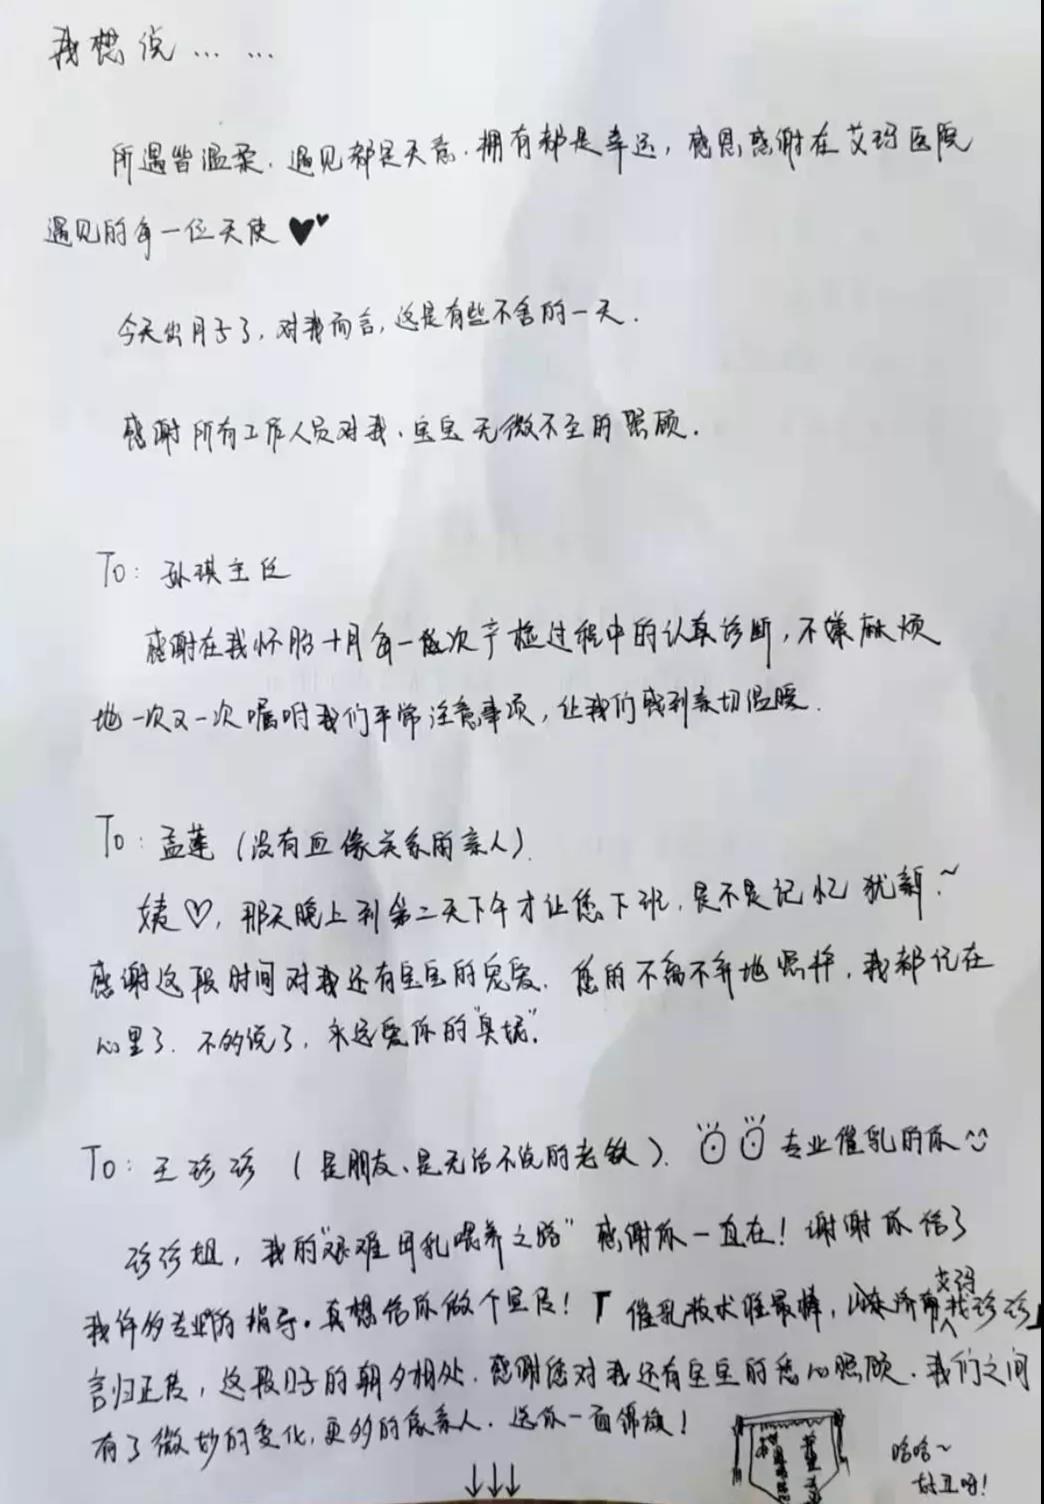 我想说… …
所遇皆温柔.遇见都是天意.拥有都是幸运,感恩感谢在艾玛医院
遇见的每一位天使
今天出月子了,对我而言,这是有些不舍的一天.
感谢所有工作人员对我、宝宝无微不至的照顾.
To: 孙琪主任
感谢在我怀胎十月每一次产检过程中的认真诊断,不嫌麻烦
地一次又一次嘱咐我们平常注意事项,让我们感到亲切温暖.
To: 孟莲(没有血缘关系的亲人).
姨♡,那天晚上到第二天下午才让您下班,是不是记忆犹新~
感谢这段时间对我还有宝宝的宠爱.您的不离不弃地照料,我都记在
心里了.不多说了,永远爱你的"臭妮".
To: 王珍珍(是朋友、是无话不说的老铁).专业催乳的你
珍珍姐,我的"艰难母乳喂养之路"感谢你一直在!谢谢你给了
我许多专业的指导。真想给你做个宣传!「催乳技术谁最棒,山东济南艾玛找珍珍」
言归正传,这段日子的朝夕相处.感谢您对我还有宝宝的悉心照顾.我们之间
有了微妙的变化,更多的像亲人.送你一面锦旗!
↓↓↓
哈哈~
好丑呀!